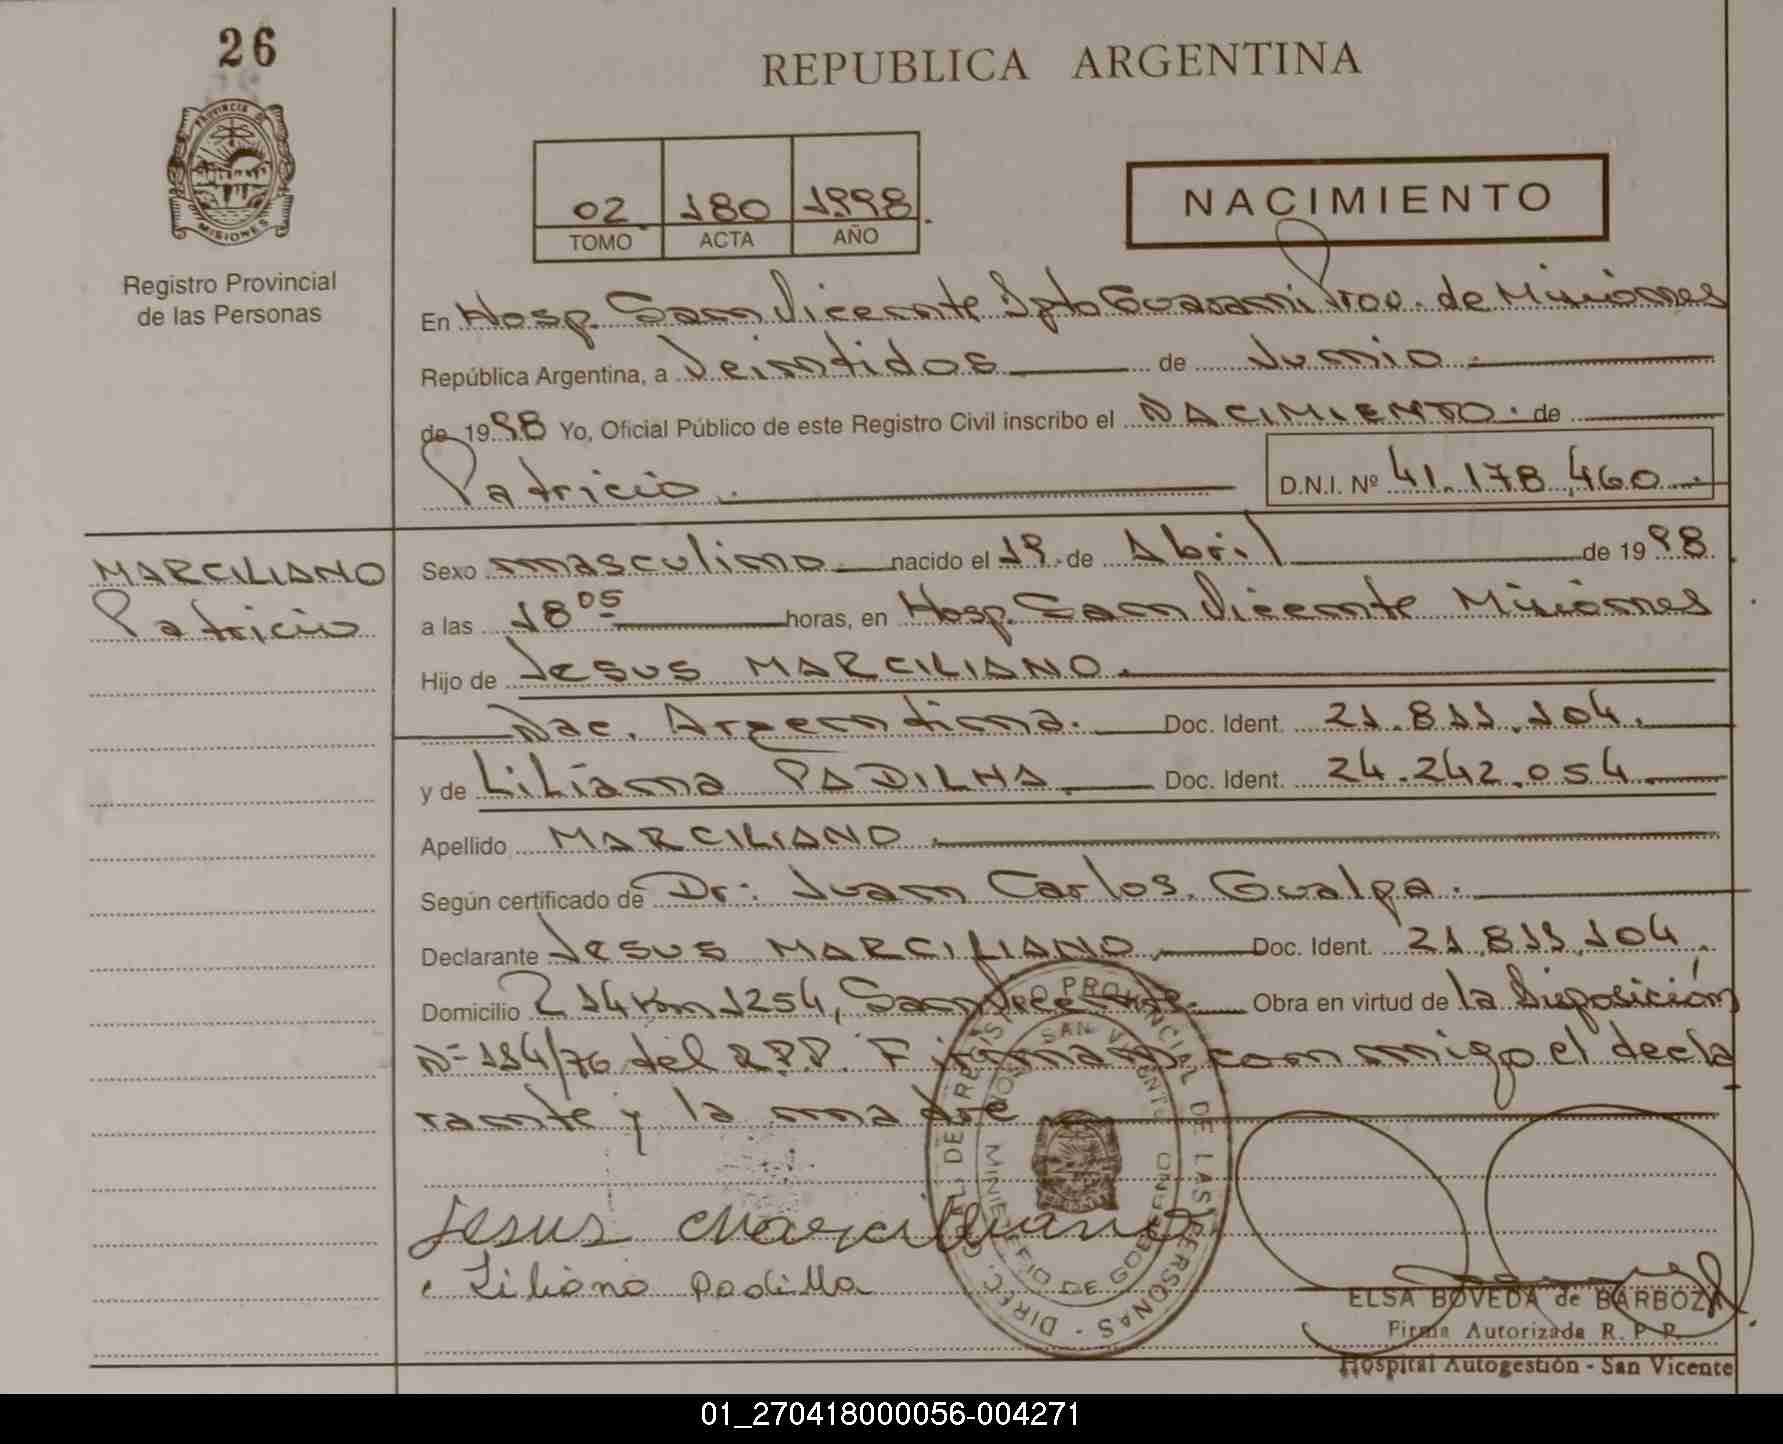 26
REPUBLICA ARGENTINA
PROVINCIA DE
MISIONES
Registro Provincial
de las Personas
02 180 1998
TOMO ACTA AÑO
NACIMIENTO
En Hosp. San Vicente Dpto Guarani Prov. de Misiones
República Argentina, a Veintidos de Junio
de 1998 Yo, Oficial Público de este Registro Civil inscribo el NACIMIENTO. de
Patricio. D.N.I. Nº 41.178.460.
MARCILIANO
Patricio
Sexo masculino nacido el 19 de Abril de 1998.
a las 18 05 horas, en Hosp. San Vicente Misiones
Hijo de Jesus MARCILIANO.
Nac. Argentina. Doc. Ident. 21.811.104.
y de Liliana PADILHA Doc. Ident. 24.242.054.
Apellido MARCILIANO.
Según certificado de Dr: Juan Carlos Gualpa.
Declarante Jesus MARCILIANO Doc. Ident. 21.811.104.
Domicilio 214 Km 1254, San Vicente. Obra en virtud de la Disposición
Nº 114/76 del R.P.P. Firman conmigo el decla
rante y la madre
Jesus Marciliano
Liliana Padilla
DIREC. GRAL. DE REGISTRO PROVINCIAL DE LAS PERSONAS
SAN VICENTE
MINISTERIO DE GOBIERNO
ELSA BOVEDA de BARBOZA
Firma Autorizada R. P. P.
Hospital Autogestión - San Vicente
01_270418000056-004271